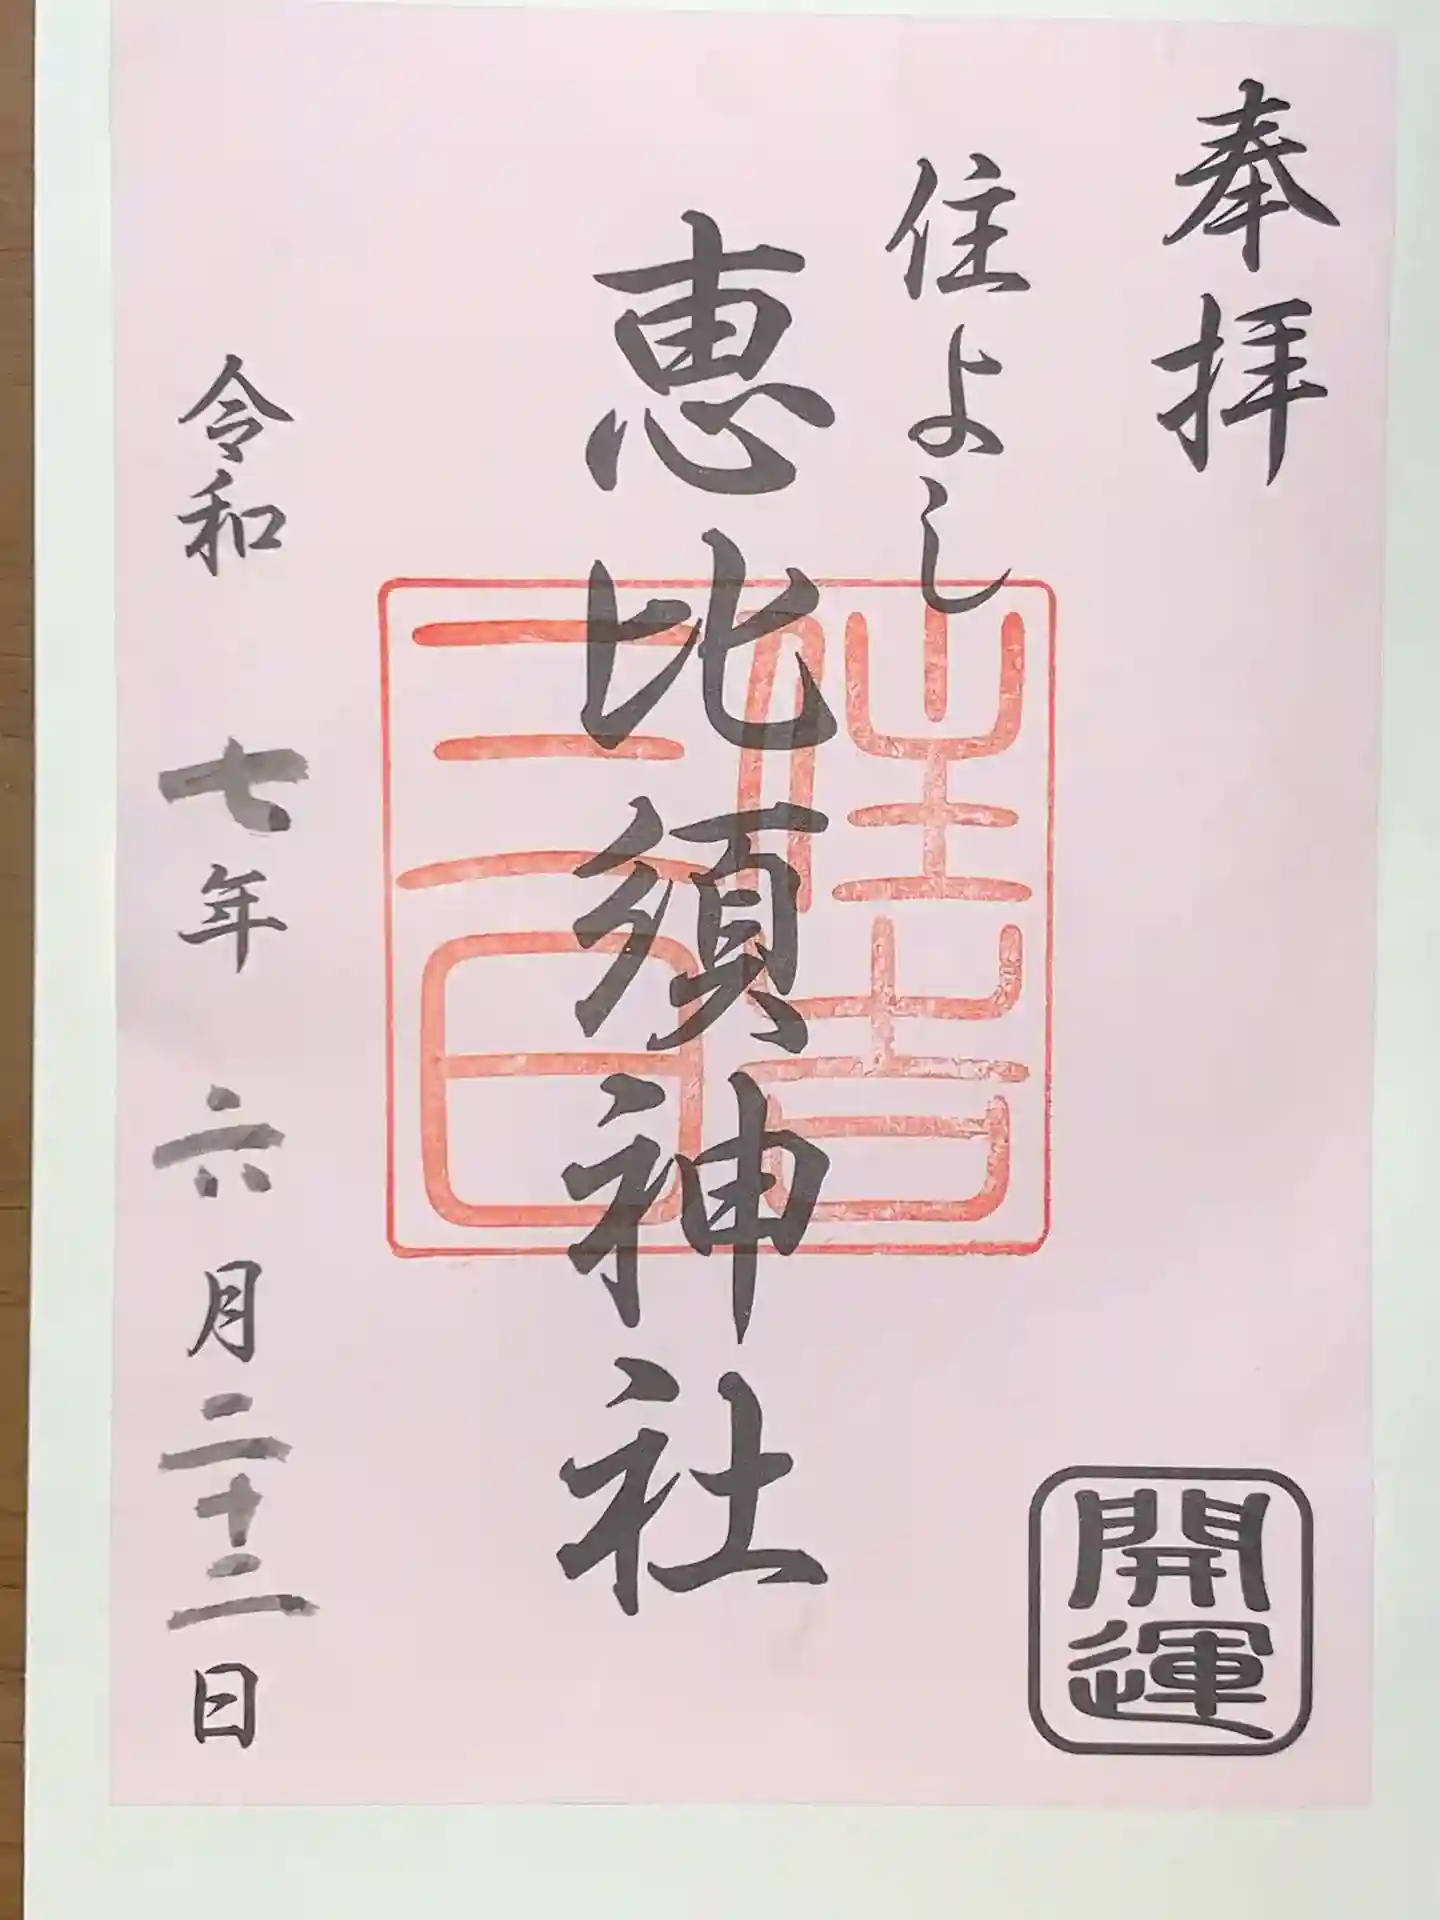 奉拝
住よし
恵比須神社
住吉
三日
令和 七年 六月二十二日
開運